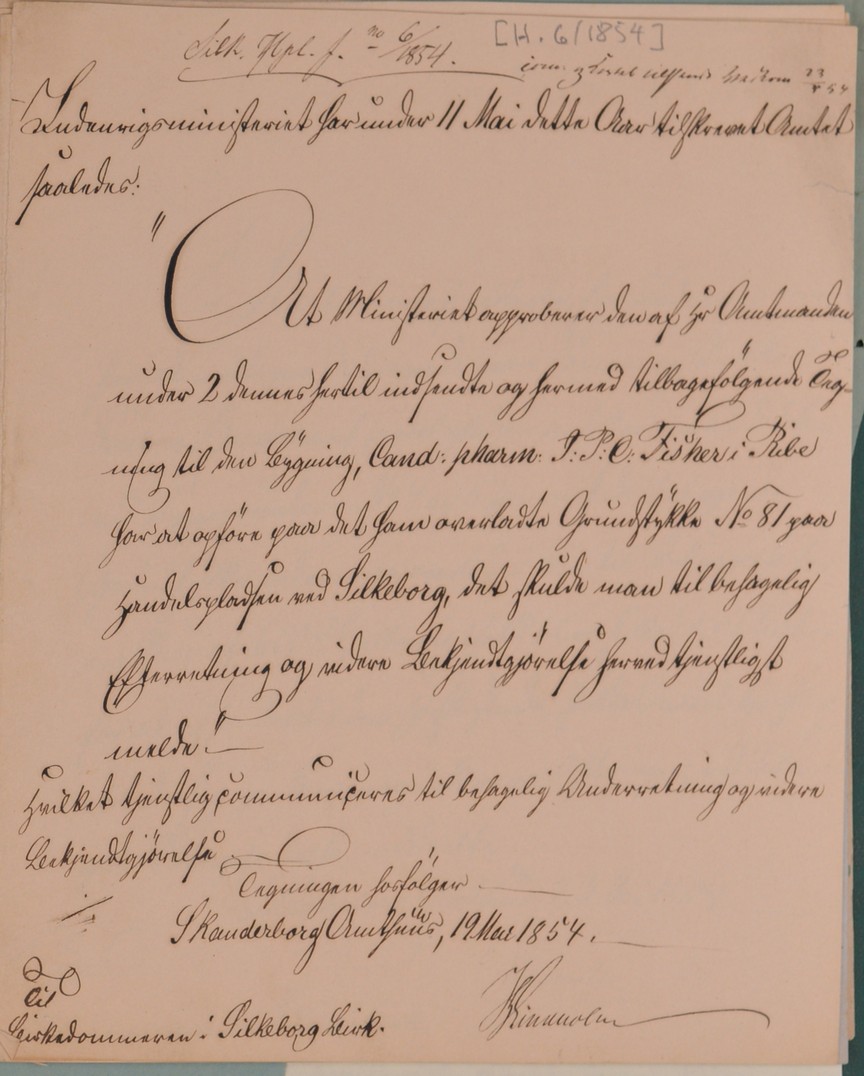 Silk. Hpl. J. no 6/1854.
[H. 6/1854]
23/5 54
Indenrigsministeriet har under 11 Mai dette Aar tilskrevet Amtet
saaledes:
"At Ministeriet approberer den af Hr Amtmanden
under 2 dennes hertil indsendte og hermed tilbagefölgende Teg-
ning til den Bÿgning, Cand: pharm: J: P: C: Fisher i Ribe
har at opföre paa det ham overladte Grundstÿkke No 81 paa
Handelspladsen ved Silkeborg, det skulde man til behagelig
Efterretning og videre Bekjendtgjörelse herved tjenstligst
melde."
Hvilket tjenstlig communiceres til behagelig Underretning og videre
Bekjendtgjörelse
Tegningen hosfölger
Skanderborg Amthuus, 19 Mai 1854.
Til
Birkedommeren i Silkeborg Birk.